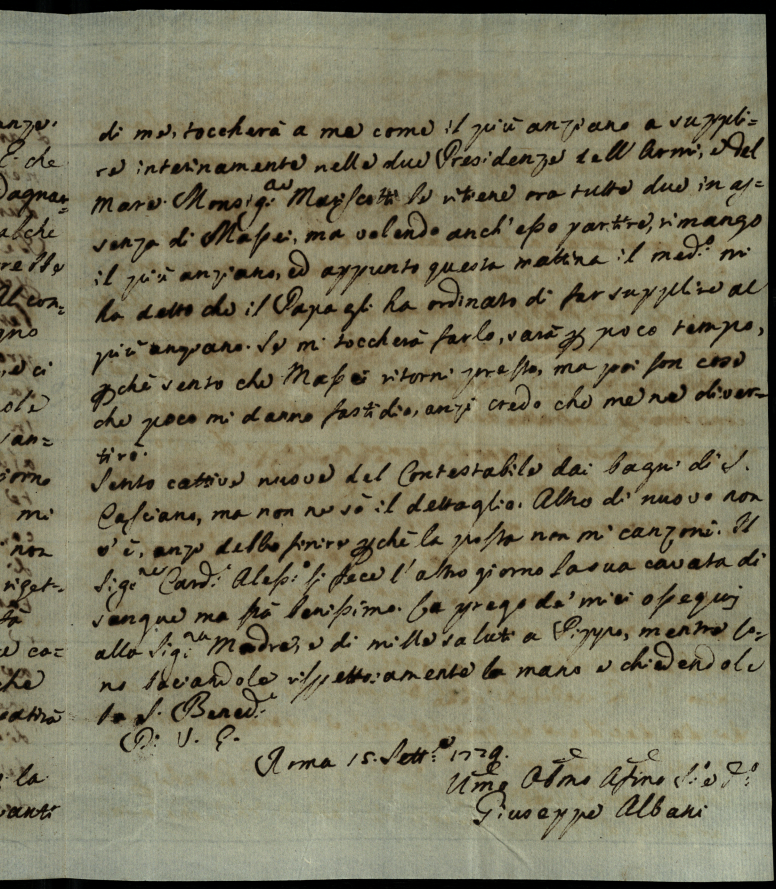 di me, toccherà a me come il più anziano a suppli=
re interinamente nelle due Presidenze dell'Armi, e del
Mare. Monsig.re Mariscotti le ritiene ora tutte due in as=
senza di Massei, ma volendo anch'esso partire, rimango
il più anziano, ed appunto questa mattina il med.o mi
ha detto che il Papa gli ha ordinato di far supplire al
più anziano. Se mi toccherà farlo, sarà p poco tempo,
pchè sento che Massei ritorni presto, ma poi son cose
che poco mi danno fastidio, anzi credo che me ne diver=
tirò.
Sento cattive nuove del Contestabile dai bagni di S.
Casciano, ma non ne sò il dettaglio. Altro di nuovo non
v'è, anzi debbo finire pchè la posta non mi canzoni. Il
Sig.re Card.l Aless.o si fece l'altro giorno la sua cavata di
sangue ma stà benissimo. La prego de' miei ossequj
alla Sig.ra Madre, e di mille saluti a Pippo, mentre io
no baciandole rispettosamente la mano e chiedendole
la S. Bened.e
Di V. E.
Roma 15. Sett.e 1779.
Umo Obmo Afmo
Giuseppe Albani
anze.
E. che
Dagna=
alche
Al con=
gno
, e ci
san=
giorno
mi
non
riget=
ca=
che
la
vanti